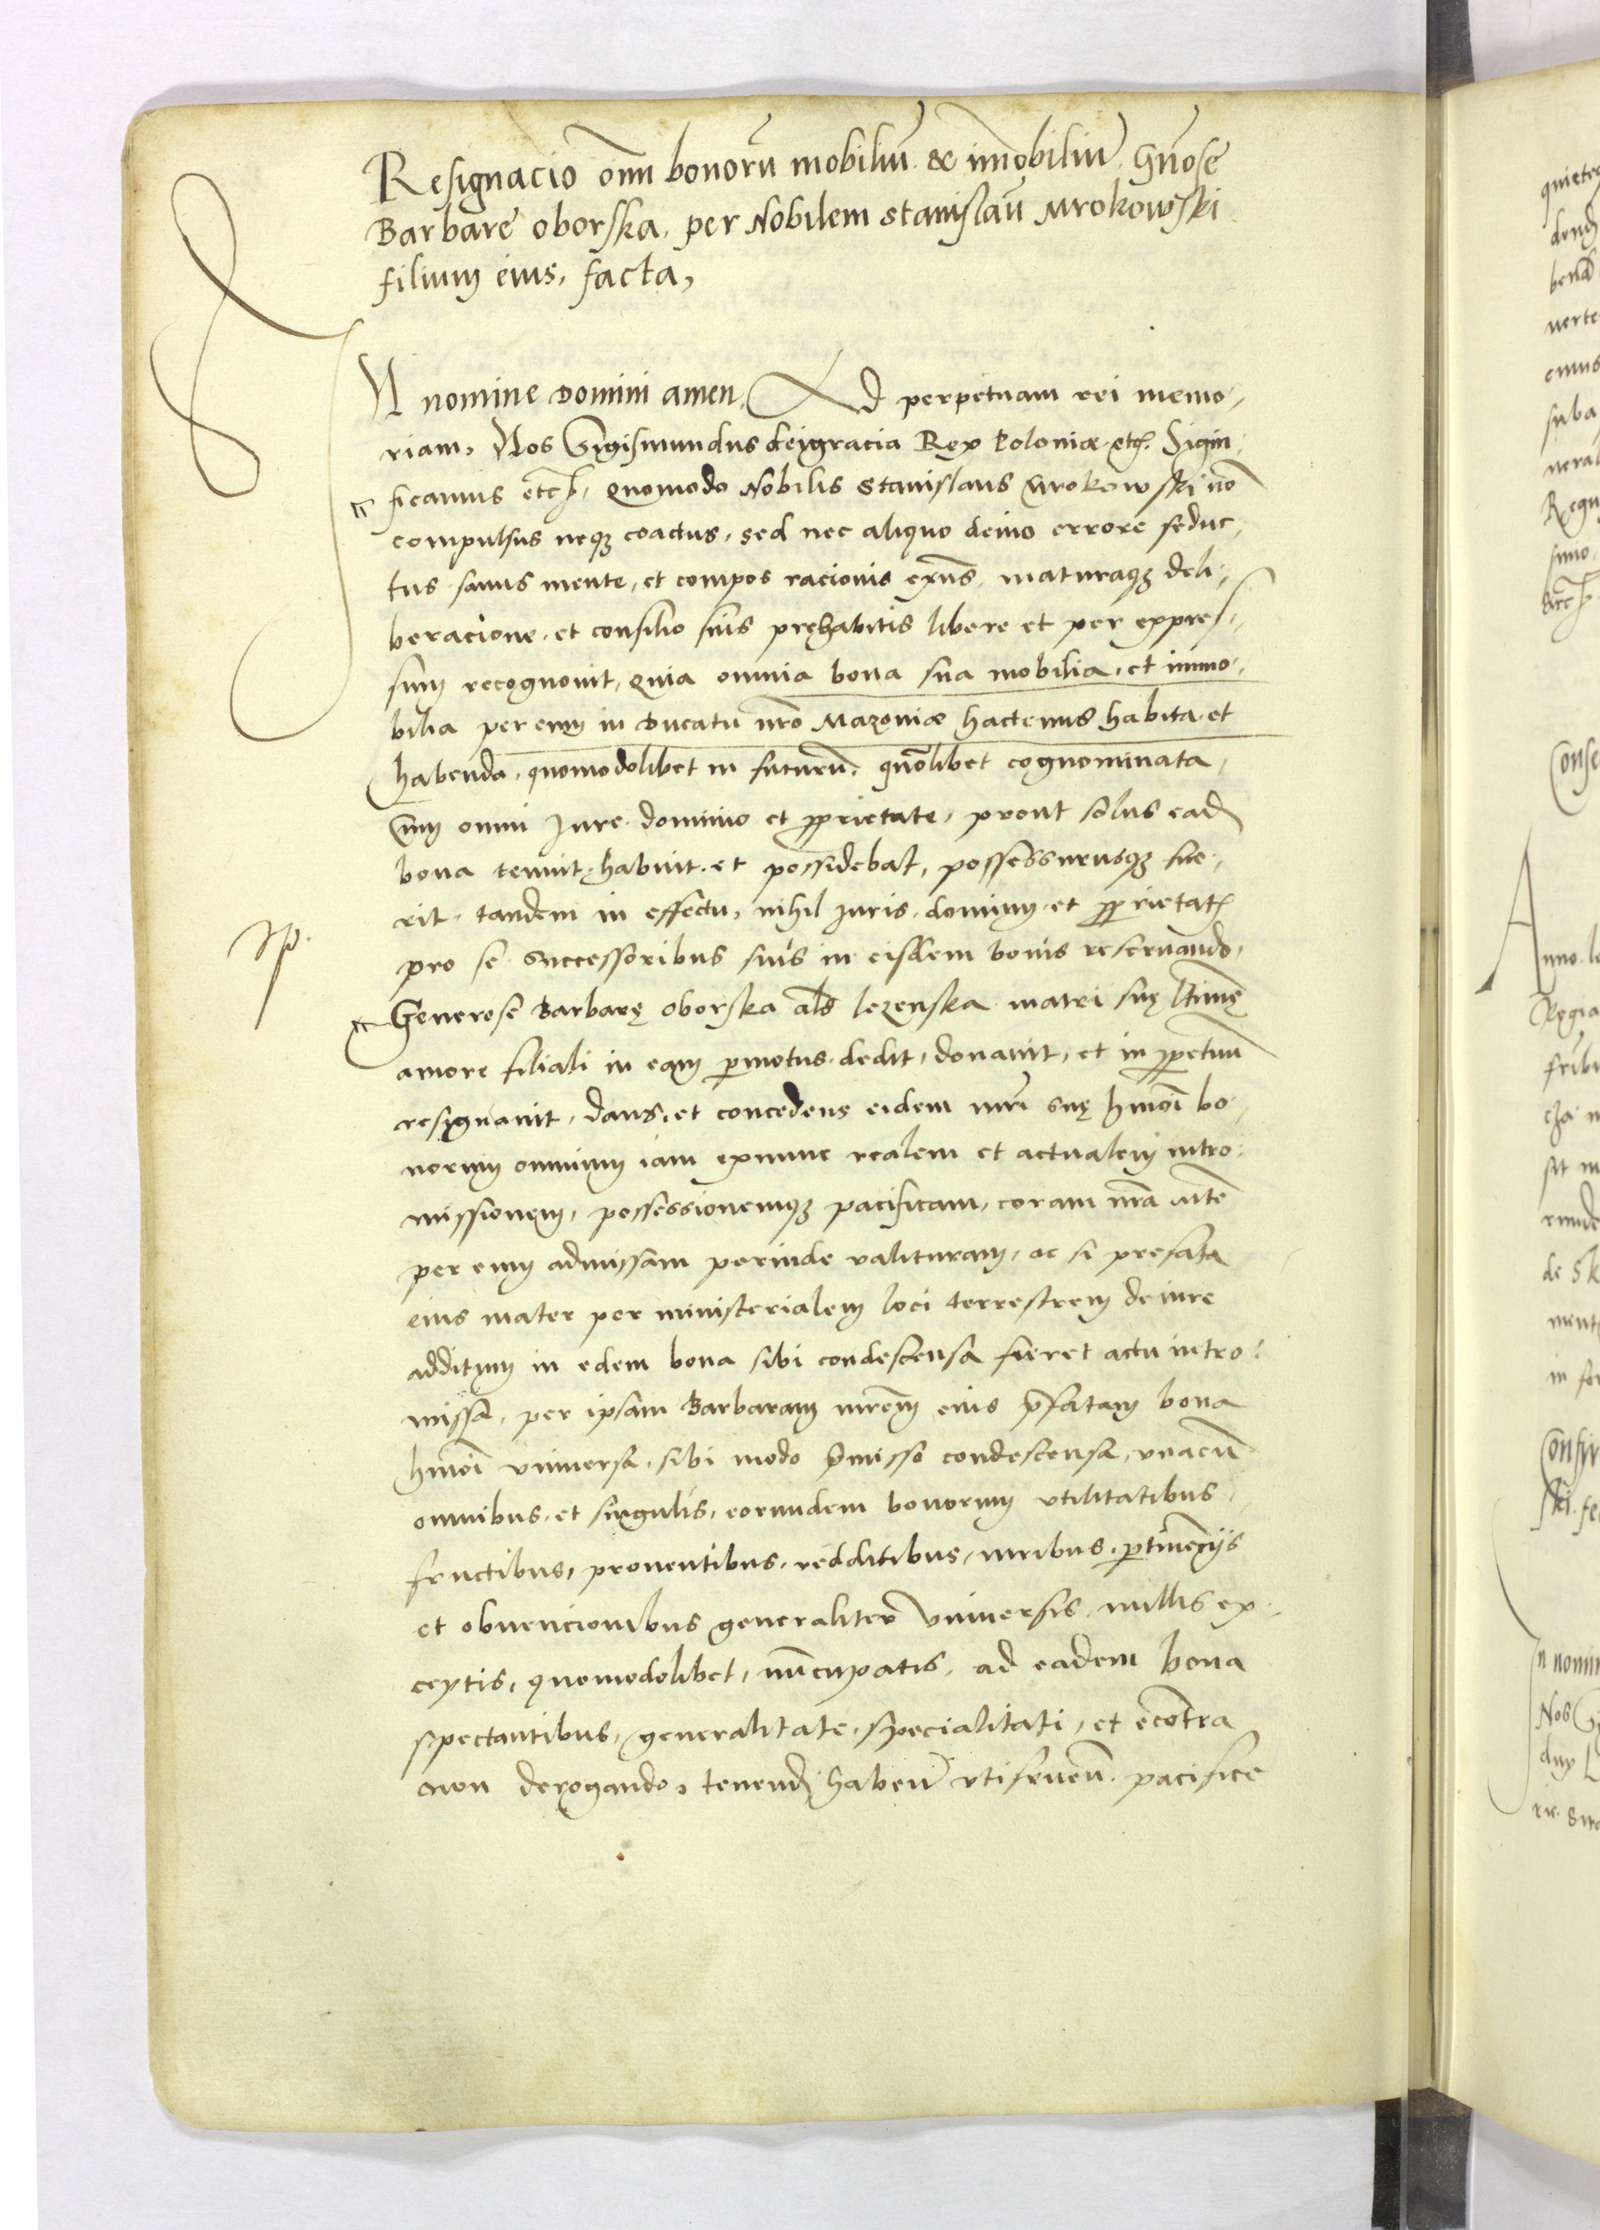 Resignacio om̄ bonorū mobiliū & im̄obiliū Gn̄ose
Barbare oborska, per Nobilem Stanislaū Mrokowski
filium eius, facta,
IN nomine Domini amen. Ad perpetuam rei memo-
riam, Nos Sigismundus deigracia Rex Poloniæ etc. Signi-
ficamus etc. Quomodo Nobilis Stanislaus Mrokowski nō
compulsus neqꝫ coactus, sed nec aliquo deuio errore seduc-
tus sanus mente, et compos racionis exn̄s, maturaqꝫ deli-
beracione et consilio suis pręhabitis libere et per expres-
sum recognouit, quia omnia bona sua mobilia, et immo-
bilia per eum in Ducatu nr̄o Mazouiæ hactenus habita et
habenda, quomodolibet in futurū, quōlibet cognominata,
cum omni Jure dominio et ꝓprietate, prout solus ead
bona tenuit, habuit et possidebat, possessurusqꝫ fue-
rit, tandem in effectu, nihil Juris, dominij et ꝓprietatꝭ
pro se Successoribus suis in eisdem bonis reseruando,
Generose Barbarę oborska al̄s lezenska matri suę l̄timę
amore filiali in eam ꝑmotus dedit, donauit, et in ꝑpetuū
resignauit, dans, et concedens eidem mr̄i suę hm̄oi bo-
norum omnium iam exnunc realem et actualem intro-
missionem, possessionemqꝫ pacificam, coram
per eum admissam perinde valituram, ac si prefata
eius mater per ministerialem loci terrestrem de iure
additum in edem bona sibi condescensa fieret actu intro-
missa, per ipsam Barbaram mr̄em eius p̄fatam bona
hm̄oi vniuersa, sibi modo p̄misso condescensa, vnacū
omnibus et singulis, eorundem bonorum vtilitatibus,
fructibus, prouentibus, redditibus, iuribus, ꝑtinēcijs
et obuencionibus generaliter vniuersis, nullis ex-
ceptis, quomodolibet, nūcupatis, ad eadem bona
spectantibus, generalitate, specialitati, et ecōtra
non derogando, tenend habeñ vtifrueñ pacifice